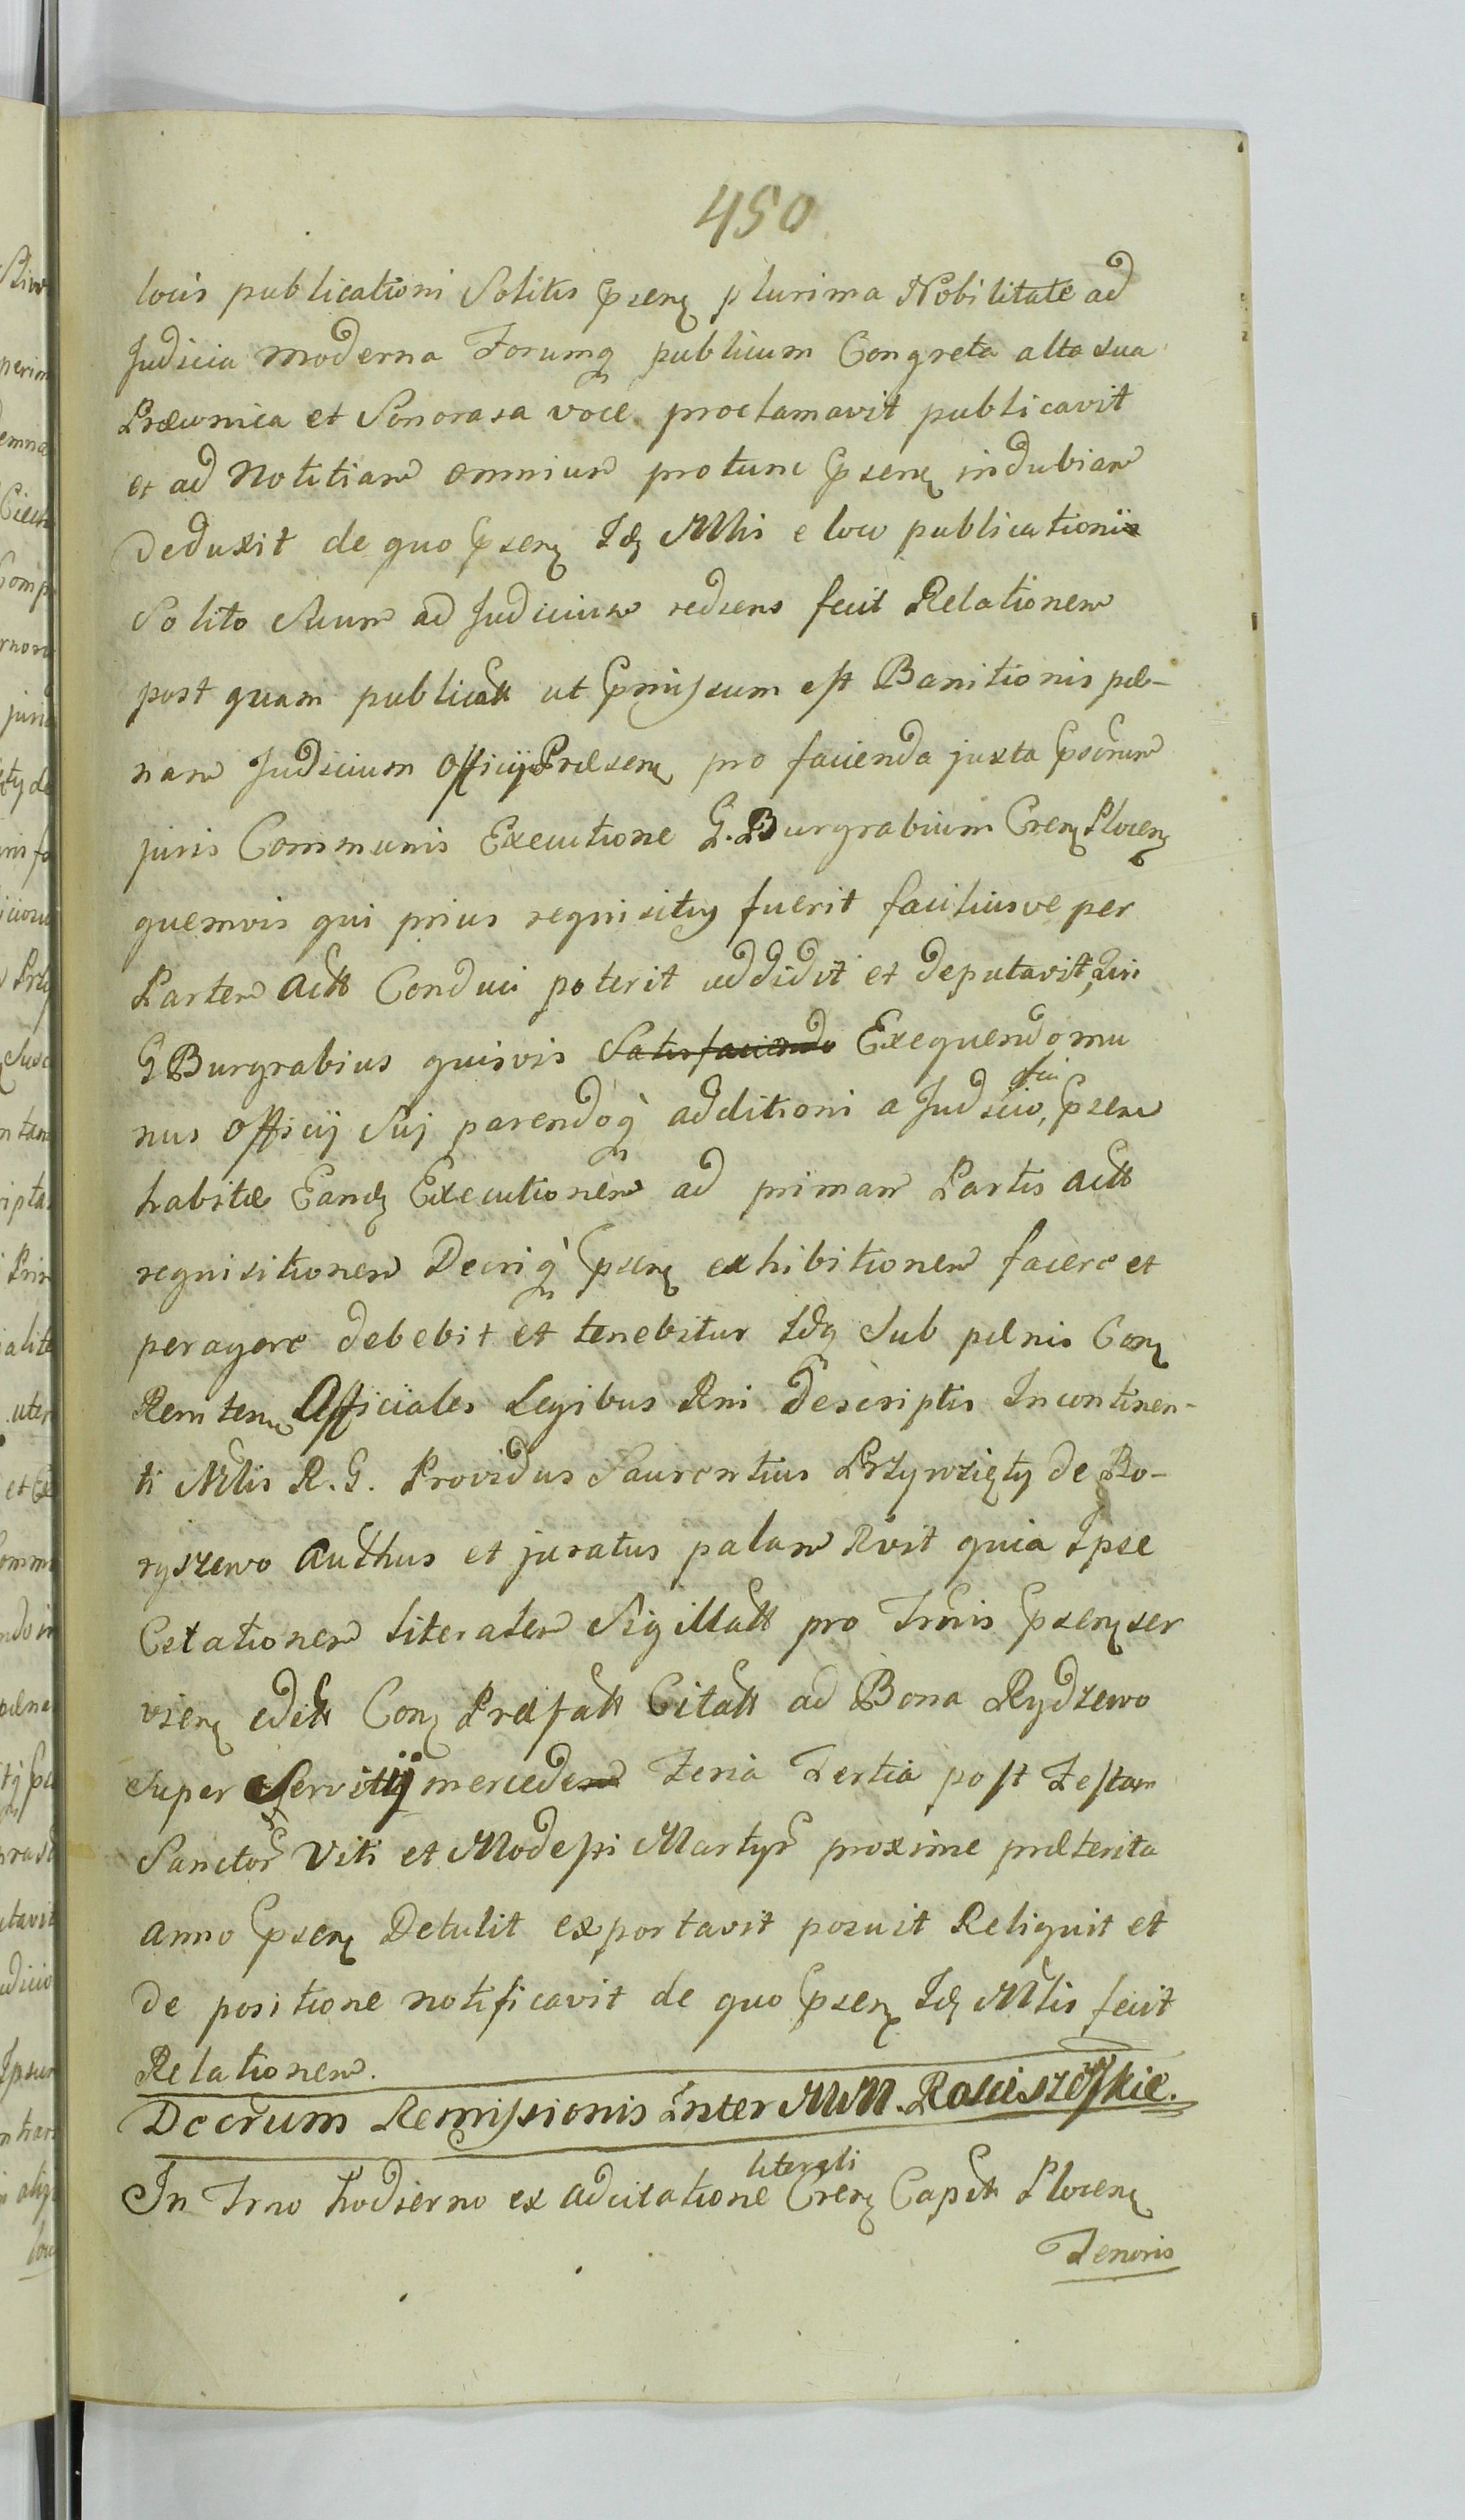 450
locis publicationi Solitis psen plurima Nobilitate ad
Judicia moderna Forumq publicum Congreta alta sua
Præconica et Sonorasa voce proclamavit publicavit
et ad Notitiam omnium protunc psen indubiam
Deduxit de quo psen Id Mlis e loco publicationis
Solito Reum ad Judicium rediens fecit Relationem
post quam publicatt ut pmissum est Banitionis pæ-
nam Judicium Officij Præsen pro facienda juxta psorum
juris Communis Executione G. Burgrabium Cren Plocen
quemvis qui prius requisitus fuerit faciliusve per
Partem Actt Conduci poterit addidit et deputavit, Qui
G Burgrabius quisvis Satisfaciendo Exequendo mu
nus Officij Sui parendoq additioni a Judicio, psen
habitæ Eand Executionem ad primam Partis Actt
requisitionem Decriq psen exhibitionem facere et
peragere debebit et tenebitur Idq Sub pænis Con
Remiten Officiales Legibus Rni descriptis Incontinen-
ti Mlis R. G. Providus Laurentius Przywzięty de Bo-
ryszewo Authus et juratus palam Rvit quia Ipse
Citationem literalem Sigillatt pro Trnis psen ser
vien editt Con Præfatt Citatt ad Bona Rydzewo
Super Servitij mercedem Feria Tertia post Festum
Sanctor Viti et Modesti Martyr proxime præterita
anno psen Detulit exportavit posuit Reliquit et
de positione notificavit de quo psen Id Mlis fecit
Relationem.
Decrum Remissionis Inter MM. Rościszewskie.
literali
In Trno hodierno ex adcitatione Cren Capitt Plocen
Tenoris